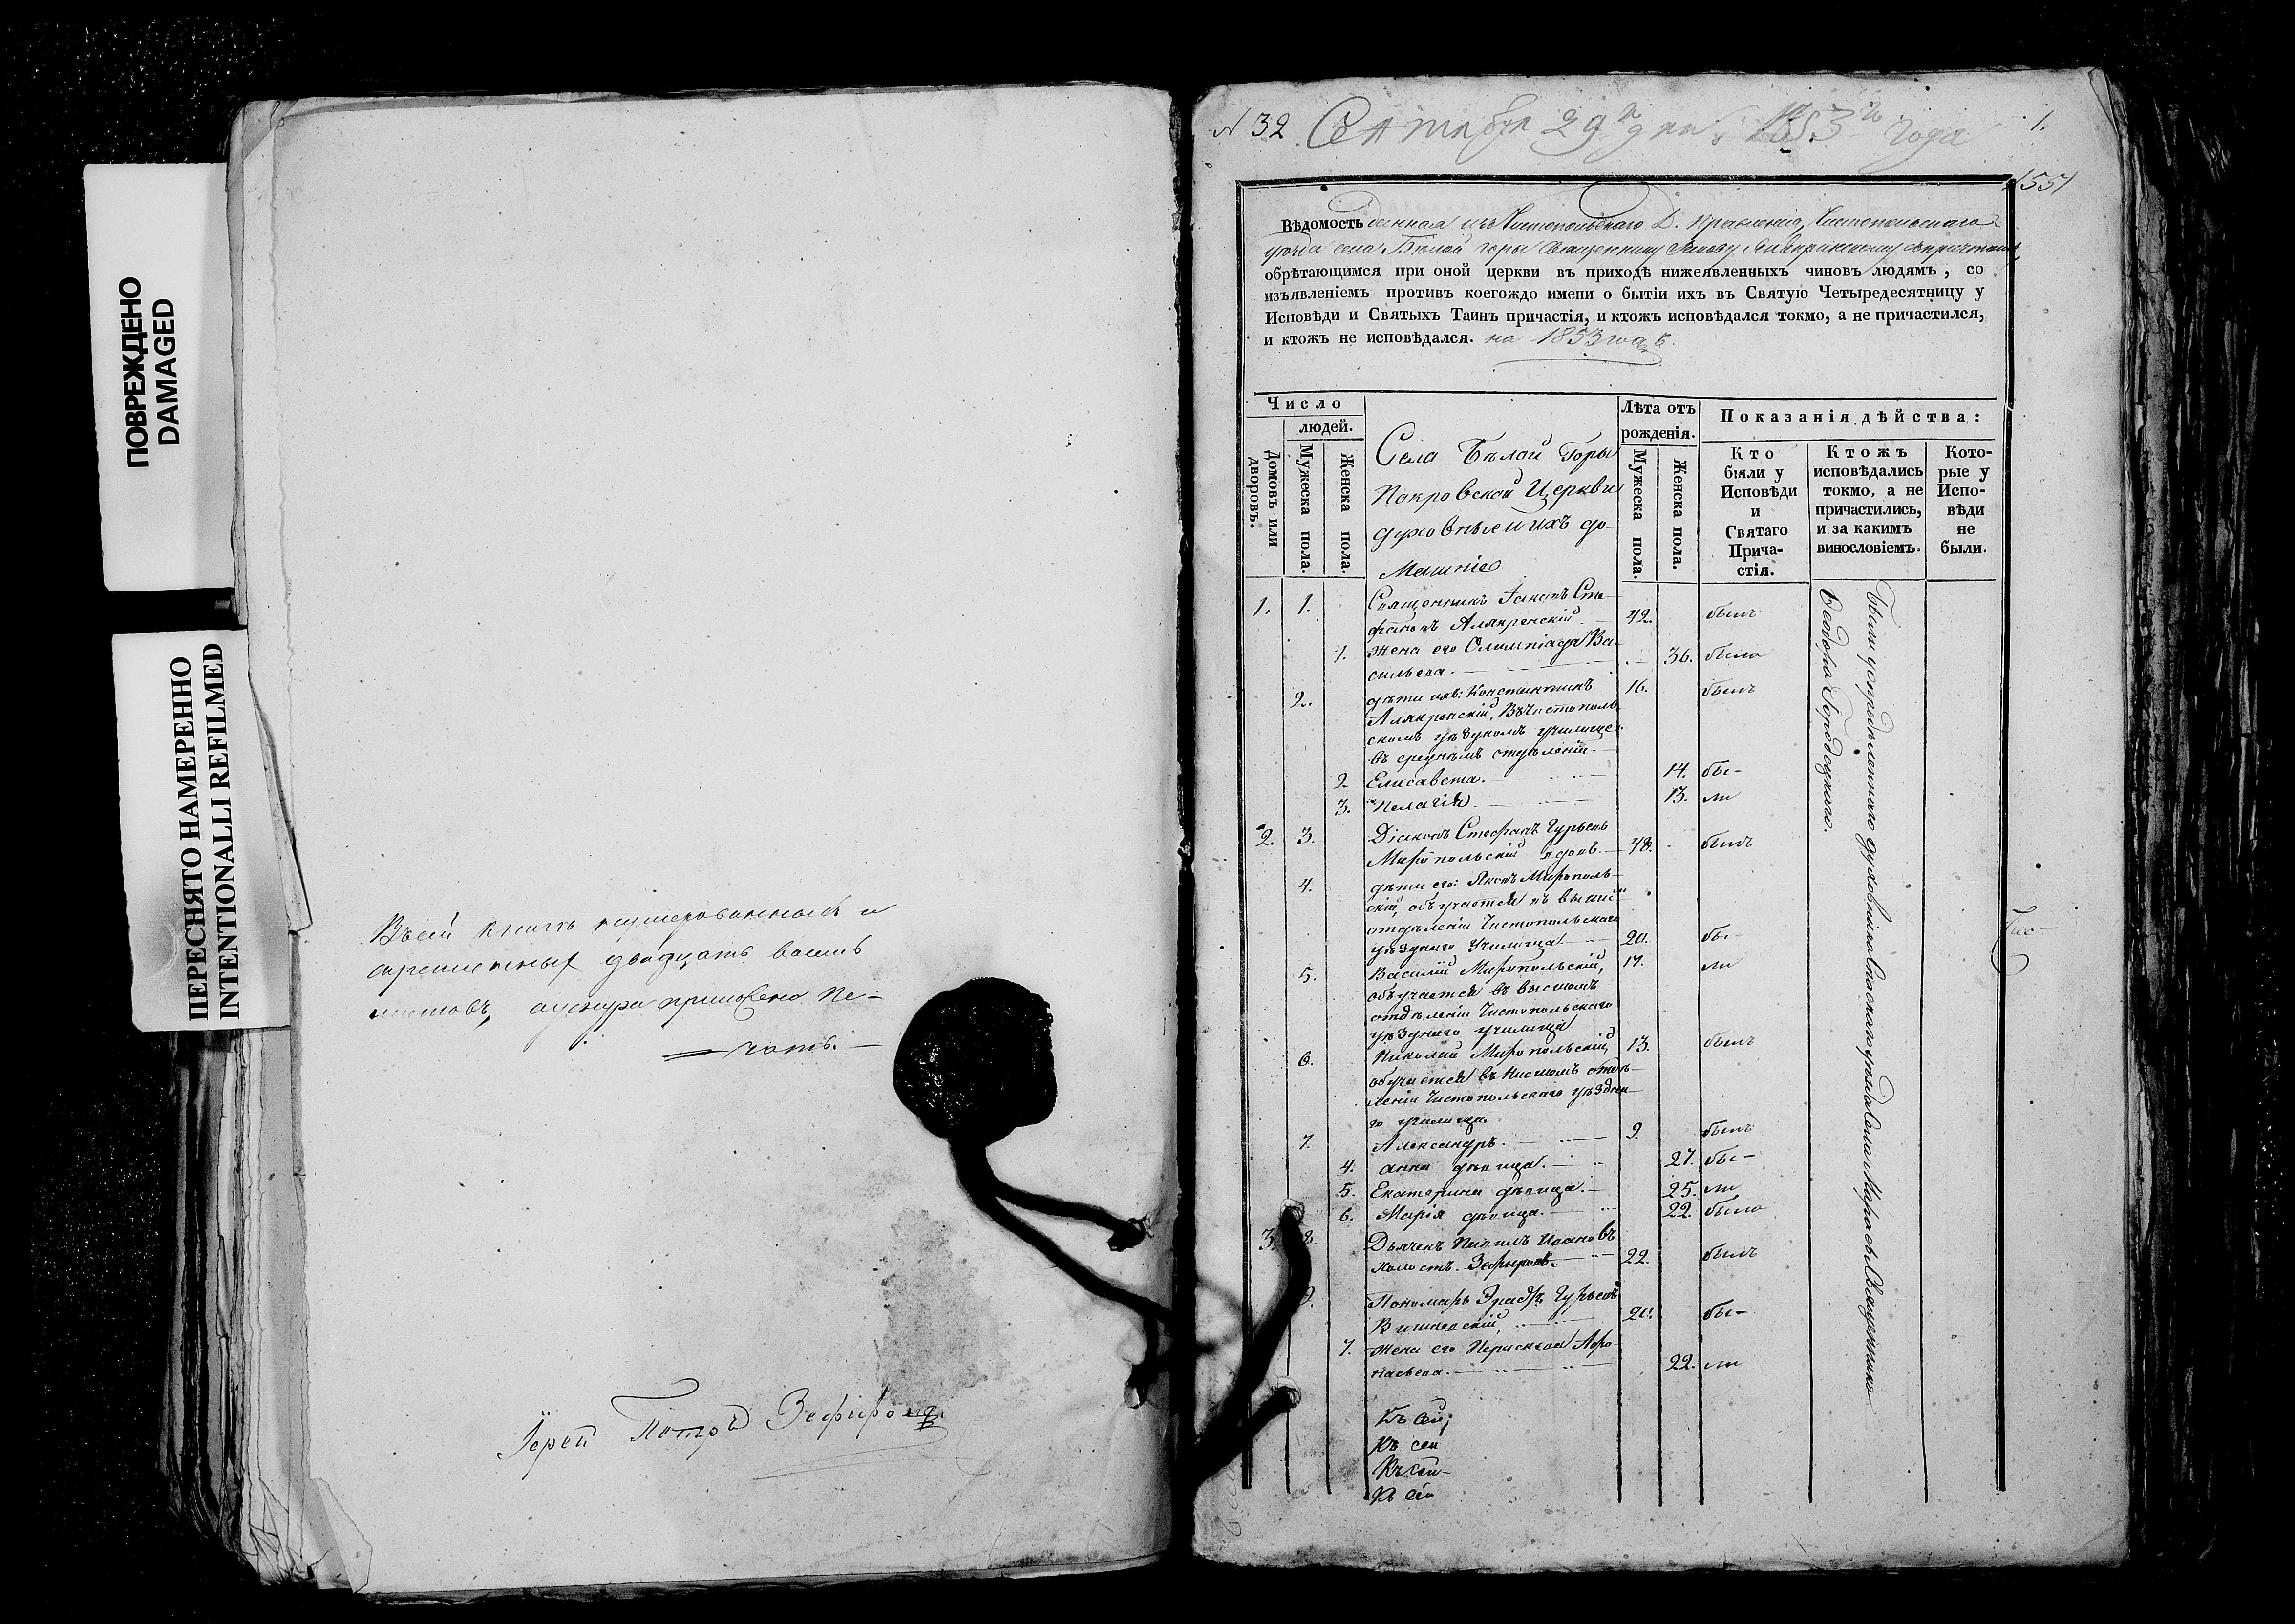 ПОВРЕЖДЕНО
DAMAGED
ПЕРЕСНЯТО НАМЕРЕННО
INTENTIONALLI REFILMED
Въ сей книгѣ нумерованныхъ и
скрепленныхъ двадцать восмь
листовъ, а у снура приложена пе-
чать.
Іерей Петръ Зефировъ
№ 32 Сентября 29 дня 1853 го года
1.
1551
Вѣдомость данная изъ Чистопольскаго Д. Правленія, Чистопольскаго
уѣзда села Бѣлой Горы Священнику Іакову Алякринскому съ причтомъ
обрѣтающимся при оной церкви въ приходѣ нижеявленныхъ чиновъ людямъ, со
изъявленіемъ противъ коегождо имени о бытіи ихъ въ Святую Четыредесятницу у
Исповѣди и Святыхъ Таинъ причастія, и ктожъ исповѣдался токмо, а не причастился,
и ктожъ не исповѣдался. на 1853 годъ.
Число
людей.
Домовъ или дворовъ.
Мужеска пола.
Женска пола.
Села Бѣлой Горы
Покровской Церкви
духовные и ихъ до-
машніе
Лѣта отъ
рожденія.
Мужеска пола.
Женска пола.
Показанія дѣйства:
Кто
были у
Исповѣди
и
Святаго
Прича-
стія.
Ктожъ
исповѣдались
токмо, а не
причастились,
и за какимъ
винословіемъ.
Кото-
рые у
Испо-
вѣди
не
были.
1. 1. Священникъ Іаковъ Сте-
фановъ Алякренскій. 42. былъ
1. Жена его Олимпіада Ва- 36. была
сильева.
2. дѣти ихъ: Константинъ 16. былъ
Алякренскій, въ Чистополь-
скомъ уѣздномъ училище
въ среднемъ отдѣленіи.
2. Елисавета. 14. бы-
3. Пелагія. 13. ли
2. 3. Діаконъ Стефанъ Гурьевъ
Миропольскій вдовъ. 48. былъ
4. дѣти его: Яковъ Мирополь-
скій, обучается въ высшемъ
отдѣленіи Чистопольскаго
уѣзднаго Училища. 20. бы-
5. Василій Миропольскій, 17. ли
обучается въ высшемъ
отдѣленіи Чистопольскаго
уѣзднаго училища
6. Николай Миропольскій, 13. былъ
обучается въ низшемъ отдѣ-
леніи Чистопольскаго уѣздна-
го училища.
7. Александръ. 9. былъ
4. Анна дѣвица. 27. бы-
5. Екатерина дѣвица. 25. ли
6. Марія дѣвица. 22. была
3. 8. Дьячекъ Ивановъ
холостъ. Зефировъ. 22. былъ
9. Пономарь Гурьевъ
Вишневскій, 20. бы-
7. Жена его Афо-
насьева. 22. ли
Къ сей;
Къ сей
Къ сей-
Къ сей
Были у опредѣленнаго духовника Спаскаго уѣзда Села Марасы Священника
Ѳеодора Городецкаго.